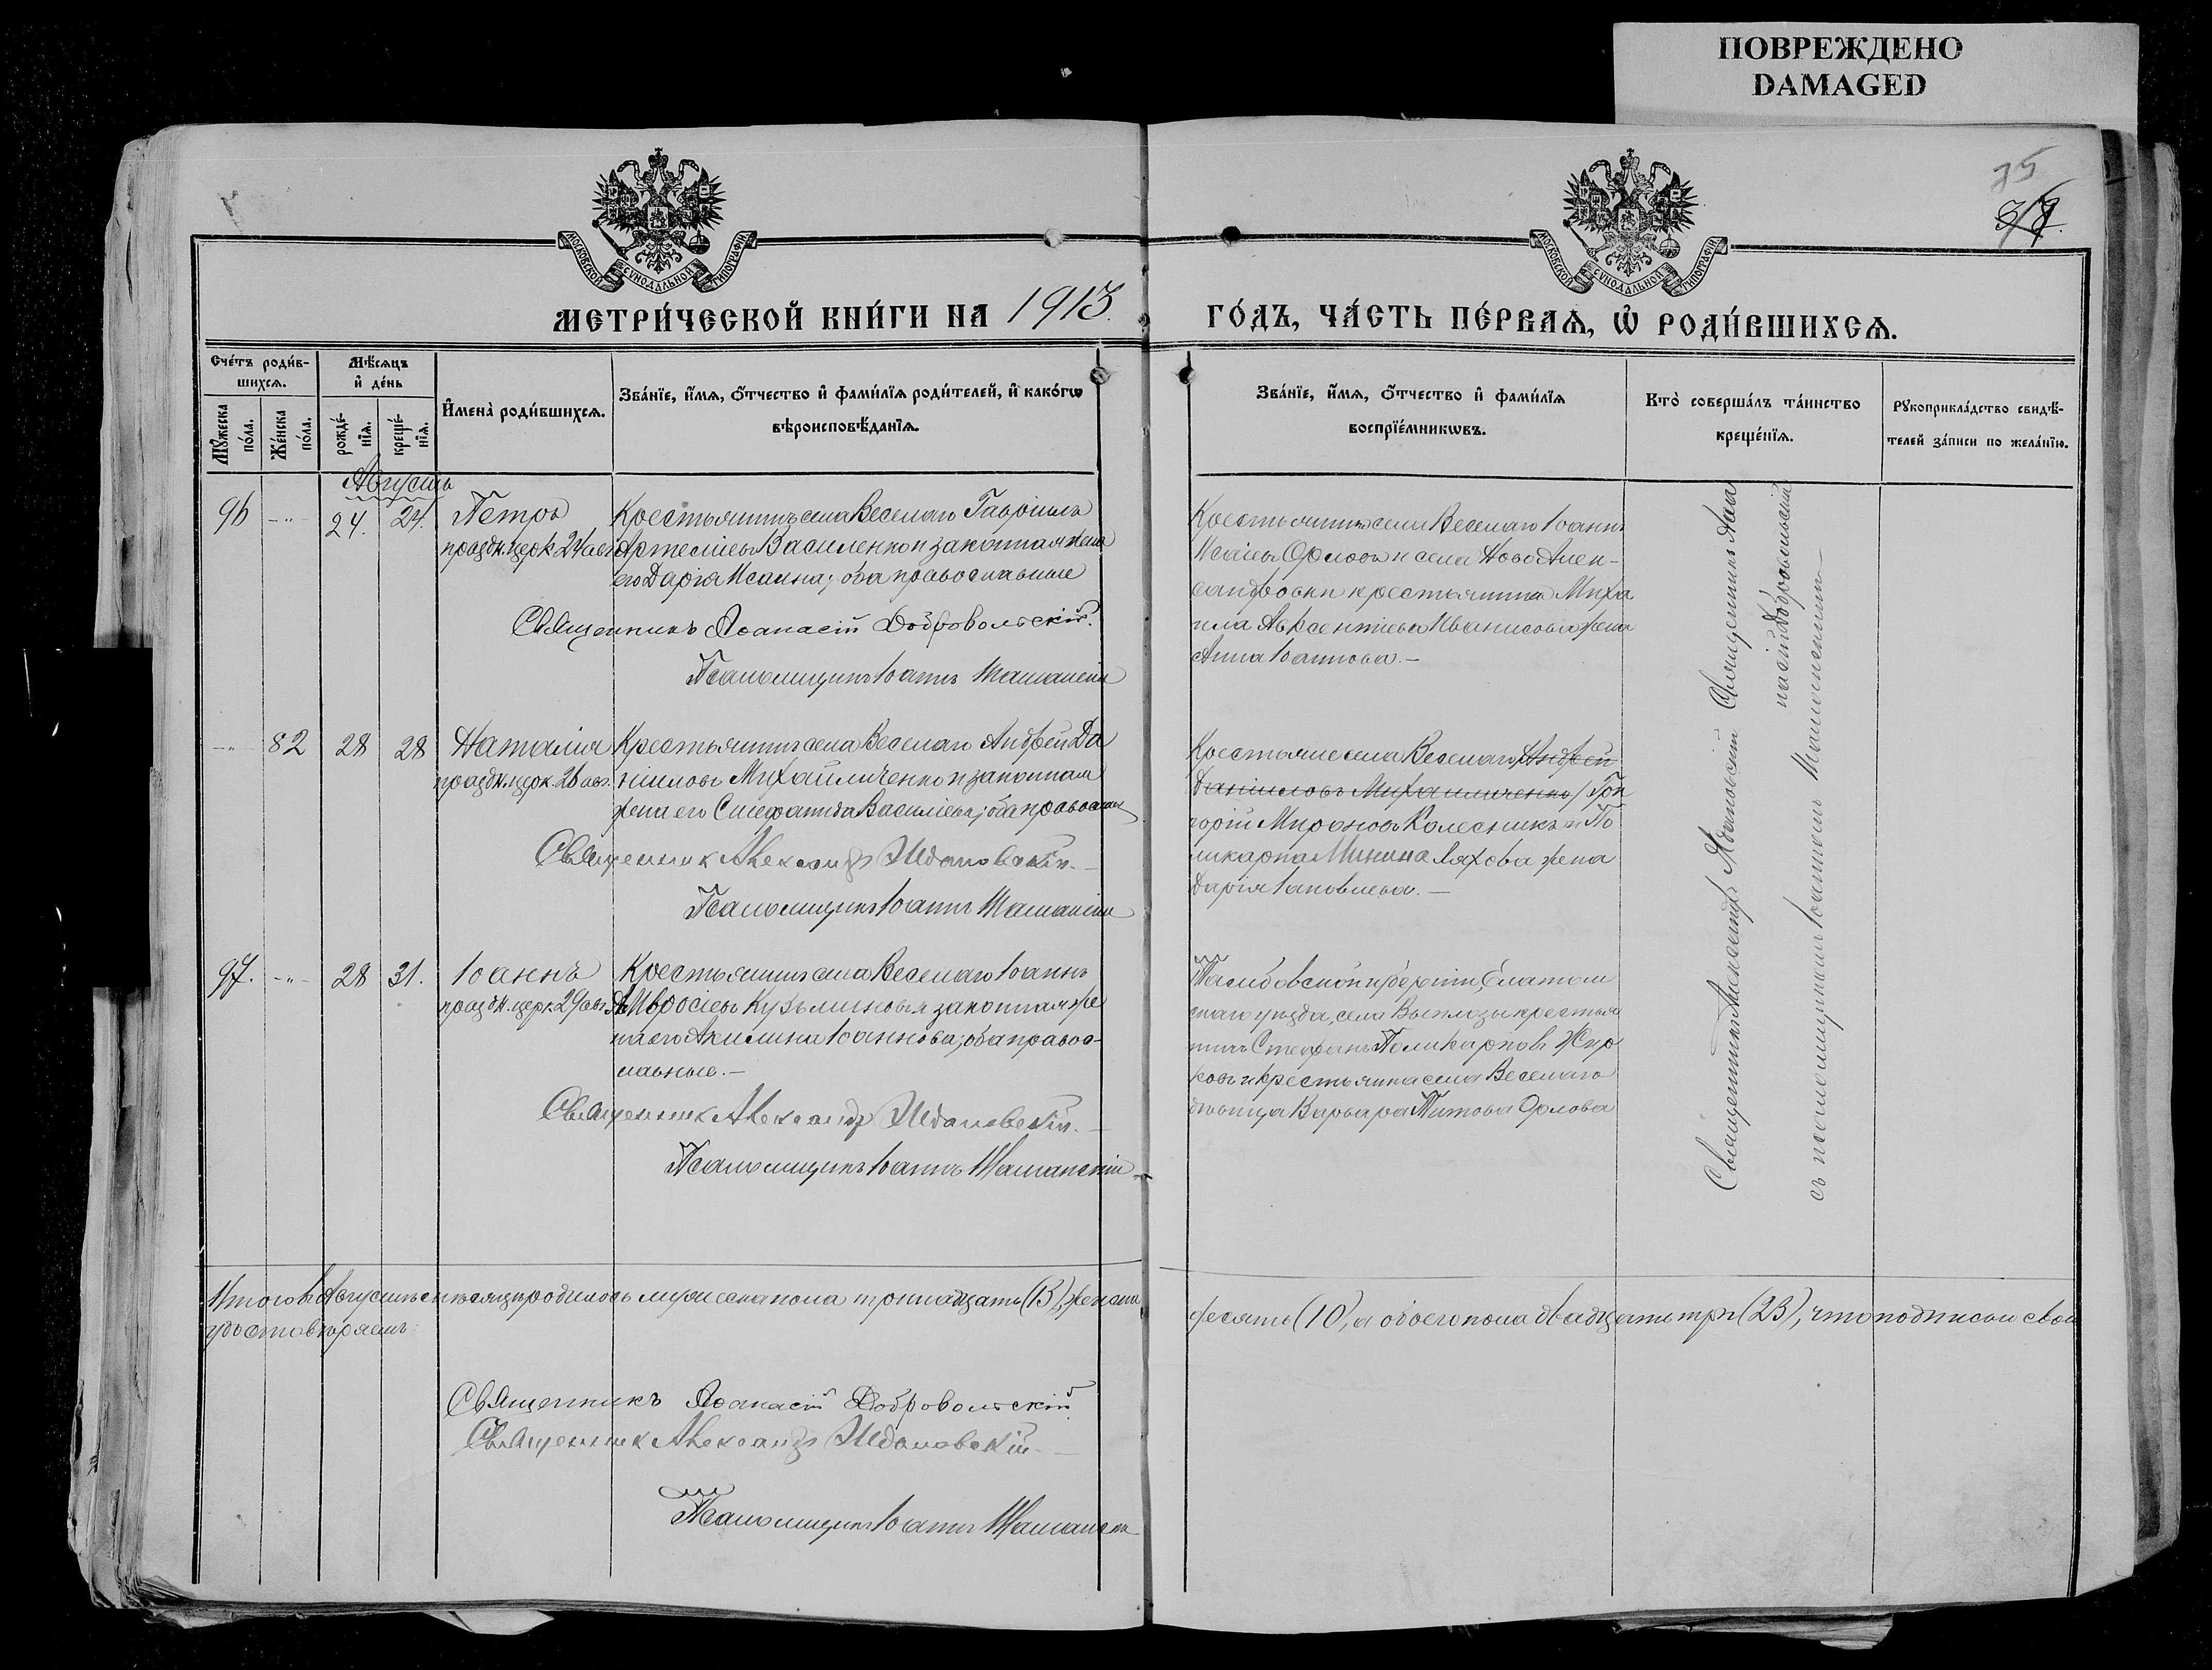 ПОВРЕЖДЕНО
DAMAGED
35
МОСКОВСКОЙ СѴНОДАЛЬНОЙ ТИПОГРАФІИ
МОСКОВСКОЙ СѴНОДАЛЬНОЙ ТИПОГРАФІИ
МЕТРИ́ЧЕСКОЙ КНИ́ГИ НА 1913.
ГО́ДЪ, ЧА́СТЬ ПЕ́РВАѦ, Ѡ҆ РОДИ́ВШИХСѦ.
Сче́тъ роди́в-
шихсѧ.
Мꙋ́жеска по́ла.
Же́нска по́ла.
Мѣ́сѧцъ
и҆ де́нь
рожде́-
нїѧ.
креще́-
нїѧ.
И҆мена̀ роди́вшихсѧ.
Зва́нїе, и҆́мѧ, ѻ҆́тчество и҆ фами́лїѧ роди́телей, и҆ како́гѡ
вѣроисповѣ́данїѧ.
Зва́нїе, и҆́мѧ, ѻ҆́тчество и҆ фами́лїѧ
воспрїе́мникѡвъ.
Кто̀ соверша́лъ та́инство
креще́нїѧ.
Рꙋкоприкла́дство свидѣ́-
телей за́писи по жела́нїю.
Августъ
96 -"- 24. 24. Петръ
праздн. церк. 24 авг.
Крестьянинъ села Веселаго Гавріилъ
Артеміевъ Василенко и законная жена
его Дарія Исаина; оба православные
Священникъ Аѳанасій Добровольскій.
Псаломщикъ Іоаннъ Шаманскій
Крестьянинъ села Веселаго Іоаннъ
Исаіевъ Орловъ и села Ново Алек-
сандровки крестьянина Миха
ила Авксентіева Иванисова жена
Анна Іаннова.—
-"- 82 28 28 Наталія
праздн. церк. 26 авг.
Крестьянинъ села Веселаго Андрей Да
ніиловъ Михайличенко и законная
жена его Синфатида Василіева; оба православн
Священник Александр Ждановскій.—
Псаломщикъ Іоаннъ Шаманскій
Крестьяне села Веселаго Андрей
Даніиловъ Михаиличенко / Гри
горій Мироновъ Колесникъ и По
ликарпа Минина Ляхова жена
Дарія Іаковлева.—
97. -"- 28 31. Іоаннъ
праздн. церк. 29 авг.
Крестьянинъ села Веселаго Іоаннъ
Амвросіевъ Кузьминовъ и законная же
на его Акилина Іоаннова; оба правос-
лавные.—
Священник Александр Ждановскій.—
Псаломщикъ Іоаннъ Шаманскій
Тамбовской губерніи, Елатом
скаго уѣзда, села крестья
нинъ Стефанъ Поликарповъ
и крестьянка села Веселаго
дѣвица Варвара Титова Орлова
Священники Александръ Ждановскій Священникъ Аѳа
насій Добровольскій
съ псаломщикомъ Іоанномъ Шаманскимъ
Итого въ Августѣ мѣсяцѣ родилось мужеска пола тринадцать (13), женска
десять (10), а обоего пола двадцать три (23), что подписом свои
удостовѣряемъ:
Священникъ Аѳанасій Добровольскій
Священник Александр Ждановскій.—
Псаломщикъ Іоаннъ Шаманскій